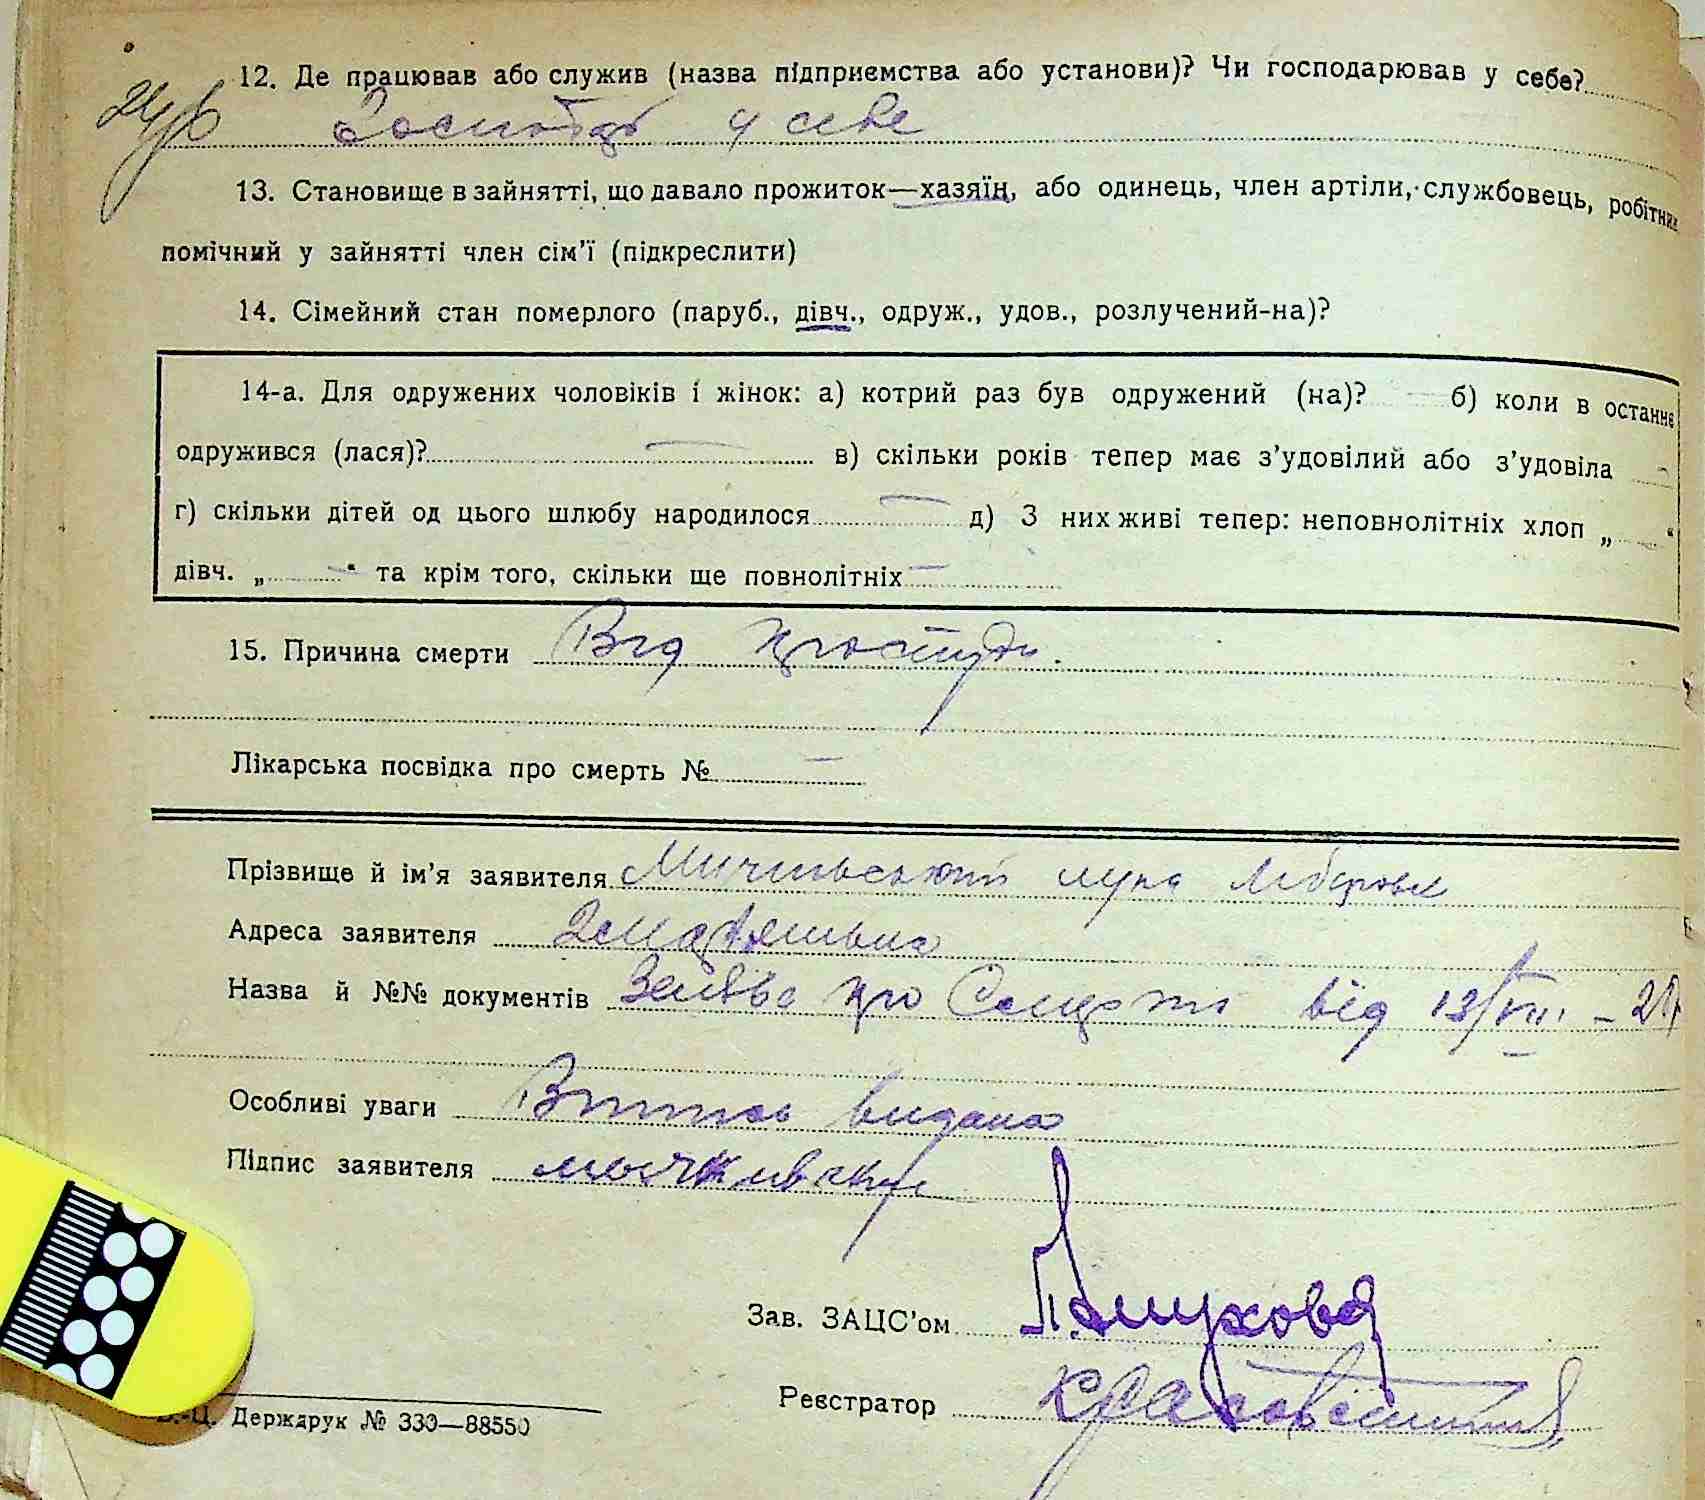 12. Де працював або служив (назва підприємства або установи)? Чи господарював у себе?
24/6 у себе
13. Становище в зайнятті, що давало прожиток—хазяїн, або одинець, член артіли, службовець, робітник
помічний у зайнятті член сім’ї (підкреслити)
14. Сімейний стан померлого (паруб., дівч., одруж., удов., розлучений-на)?
14-а. Для одружених чоловіків і жінок: а) котрий раз був одружений (на)? — б) коли в останнє
одружився (лася)? — в) скільки років тепер має з’удовілий або з’удовіла —
г) скільки дітей од цього шлюбу народилося — д) З них живі тепер: неповнолітніх хлоп „ — “
дівч. „ — “ та крім того, скільки ще повнолітніх —
15. Причина смерти Від простуди.
Лікарська посвідка про смерть № —
Прізвище й ім’я заявителя
Адреса заявителя
Назва й №№ документів Заява про Смерть від 13/VIII –
Особливі уваги Витяг видано
Підпис заявителя
Зав. ЗАЦС’ом
Реєстратор
Ц. Держдрук № 330—88550